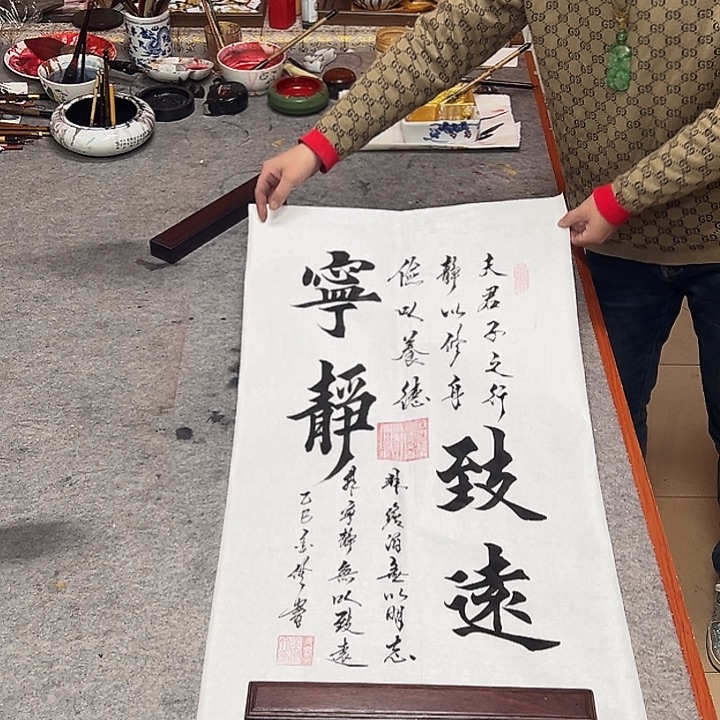 寧靜
致遠
夫君子之行
靜以修身
儉以養德
非澹泊無以明志
非寧靜無以致遠
乙巳書